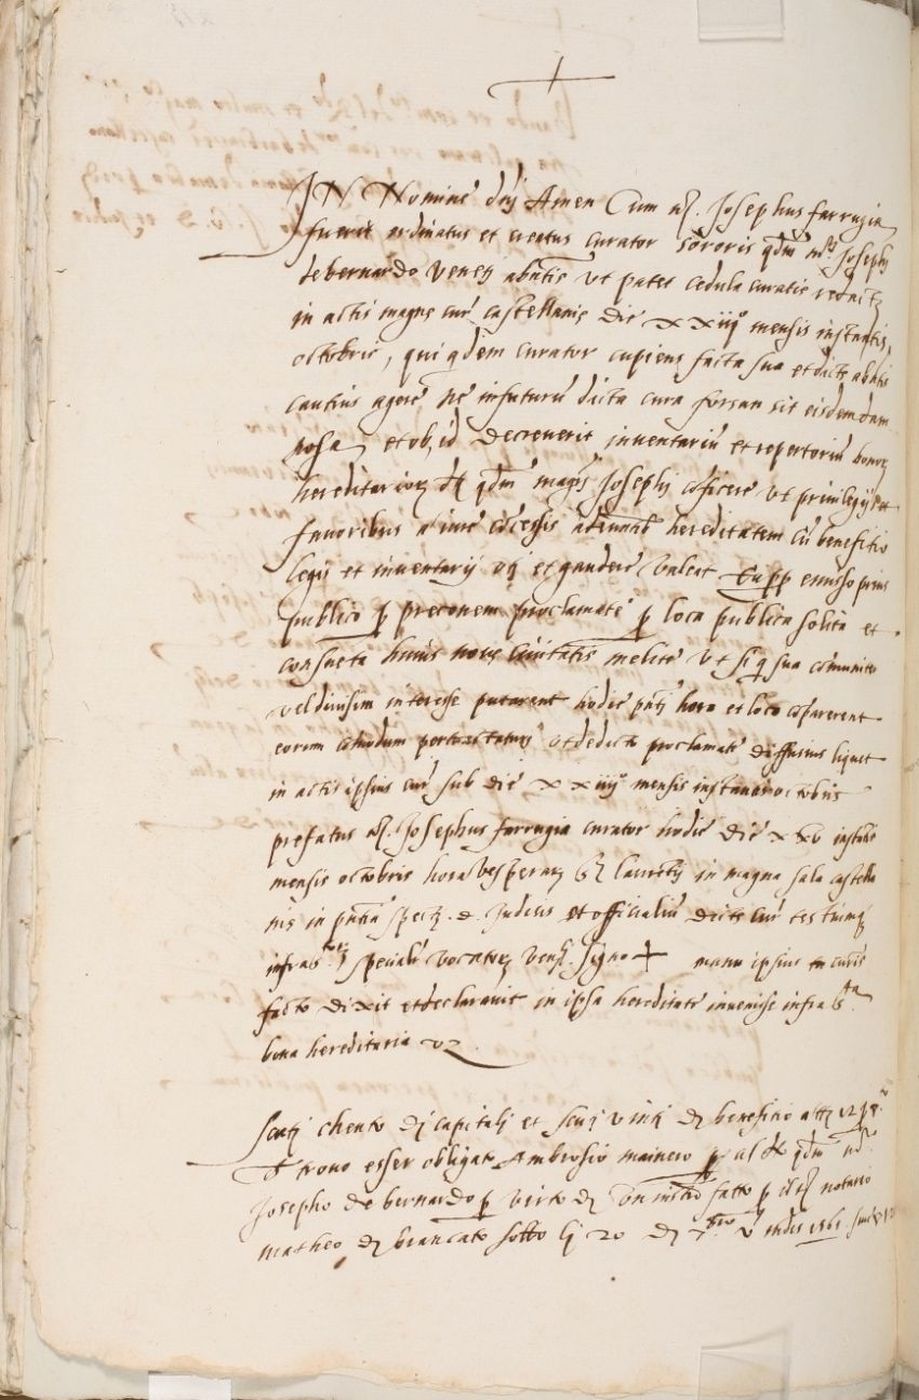 IN Nomine dnj Amen Cum nz. Josephus farrugia
fuerit ordinatus et creatus curator sororis qdm mci Josephj
de bernardo venetj abntis ut patet cedula curatie redacte
in actis magne cur castellanie die xxiiijo mensis instantis
octobris, qui qdem curator cupiens facta sua et dicte abntis
cautius agere ne infuturu dicta cura forsan sit eisdem dam
nosa et ob id decreverit inventariu et repertoriu bonor
hereditarior dti qdm magci Josephj coficere ut privilegijs et
favoribus a iure cocessis hereditatem cu benefitio
legis et inventarij utj et gaudere valeat Eapp emisso prius
publico p preconem proclamate p loca publica solita et
consueta huius nove Civitatis melite ut siq sua comuniter
vel divisim interesse putarent hodie pntj hora et loco coparerent
eorum comodum ut dedicto proclamate diffusius liquet
in actis ipsius cur sub die xxiiijo mensis instantis octobris
prefatus nz. Josephus farrugia curator hodie die xxv instantis
mensis octobris hora vesperar laurentij in magna sala castella
nie in pntia spect. d. Judicis et officialiu dicte cur testiumq
infra speciali vocator Signo + manu ipsius curie
facto dixit et declaravit in ipsa hereditate invenisse infra
bona hereditaria vz.
Scutj chento dj capitalj et scutj vintj dj benefitio
trovo esser obligato Ambrosio mainero p al dto qdm mco
Josepho de bernardo p virto dj un fatto p notario
matheo dj brancato sotto lj 20 dj 7bro v indis 1561